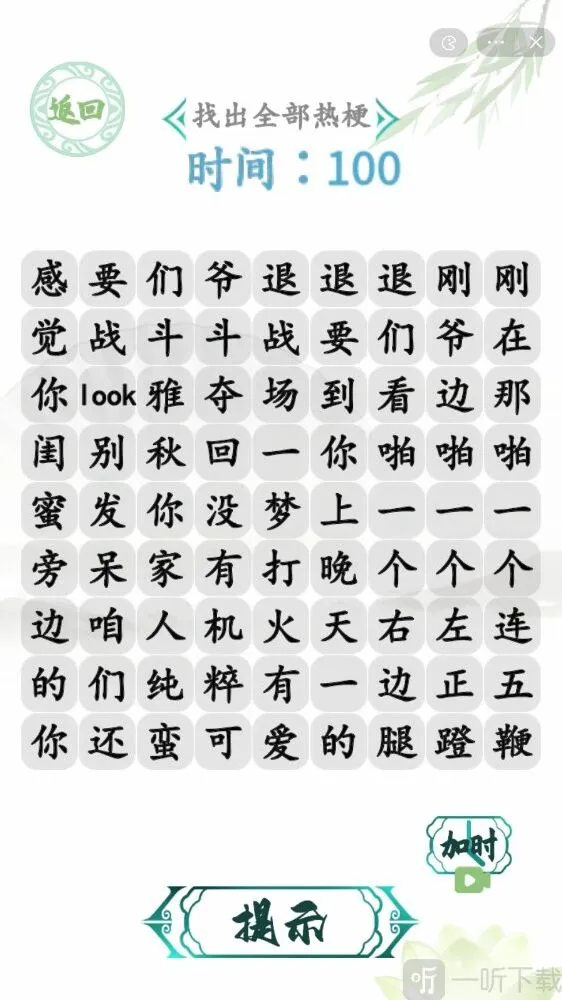 返回
找出全部热梗
时间：100
感要们爷退退退刚刚
觉战斗斗战要们爷在
你look雅夺场到看边那
闺别秋回一你啪啪啪
蜜发你没梦上一一一
旁呆家有打晚个个个
边咱人机火天右左连
的们纯粹有一边正五
你还蛮可爱的腿蹬鞭
加时
提示
听 一听下载